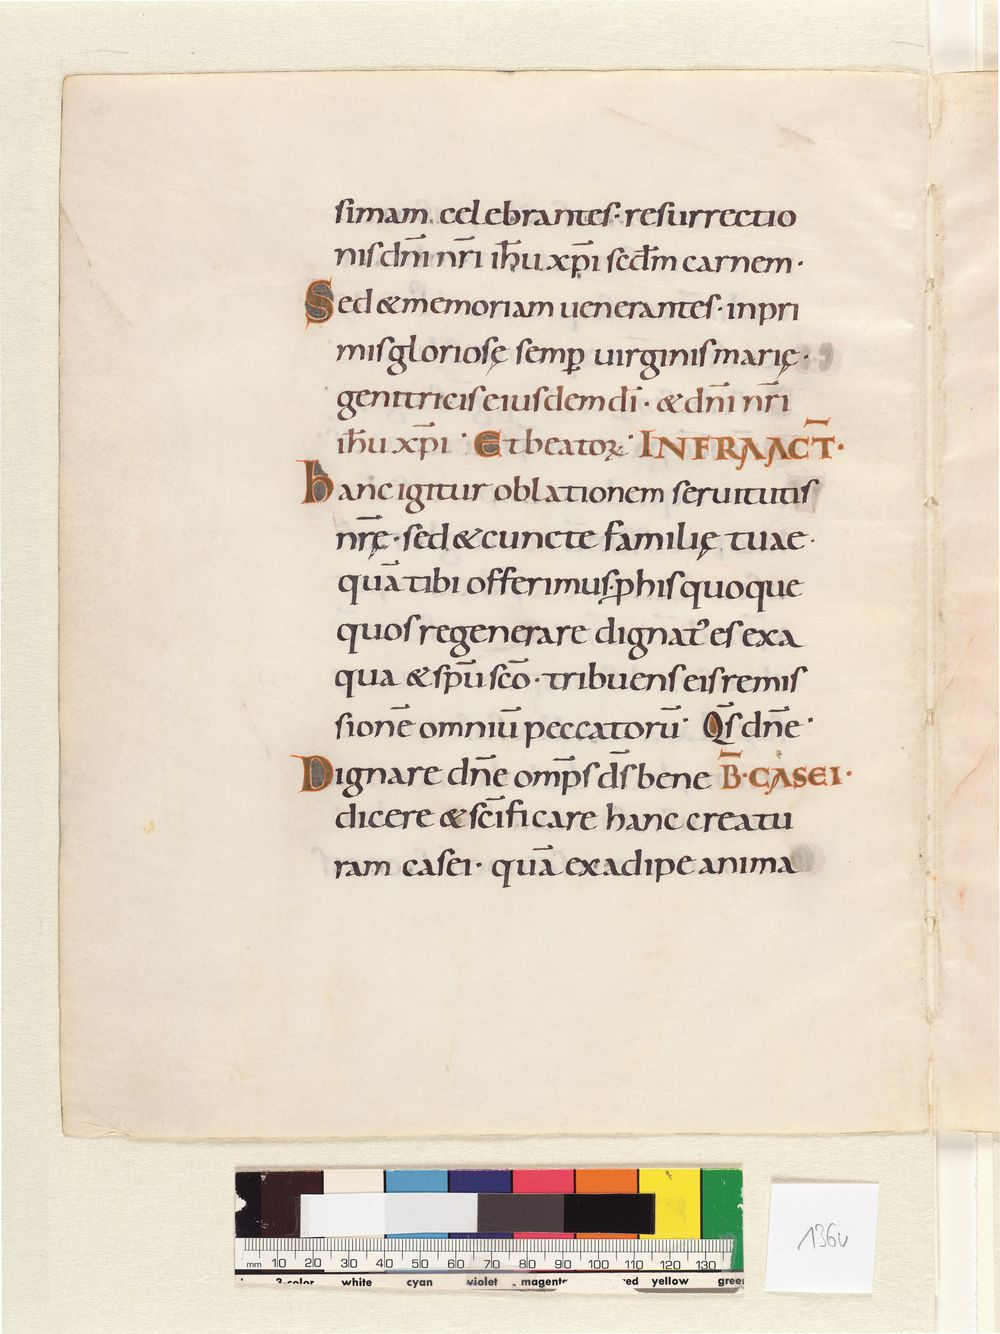 simam celebrantes· resurrectio
nis dnī nr̄i ih̄u xp̄i scdm̄ carnem·
Sed & memoriam uenerantes· inpri
mis gloriosę semp̲ uirginis marię·
genitricis eiusdem dī· & dnī nr̄i
ih̄u xp̄i· Et beatoꝝ· INFRA ACT̄·
hanc igitur oblationem seruitutis
nr̄ę· sed & cuncte familię tuae·
quā tibi offerimus· ꝓ his quoque
quos regenerare dignatꝰ es exa
qua & sp̄u scō· tribuens eis remis
sionē omniū peccatorū· Qs̄ dn̄e·
Dignare dn̄e omp̄s ds̄ bene B̄· CASEI·
dicere & scīficare hanc creatu
ram casei· quā ex adipe anima
136v
mm 10 20 30 40 50 60 70 80 90 100 110 120 130
3-color white cyan violet magenta red yellow green